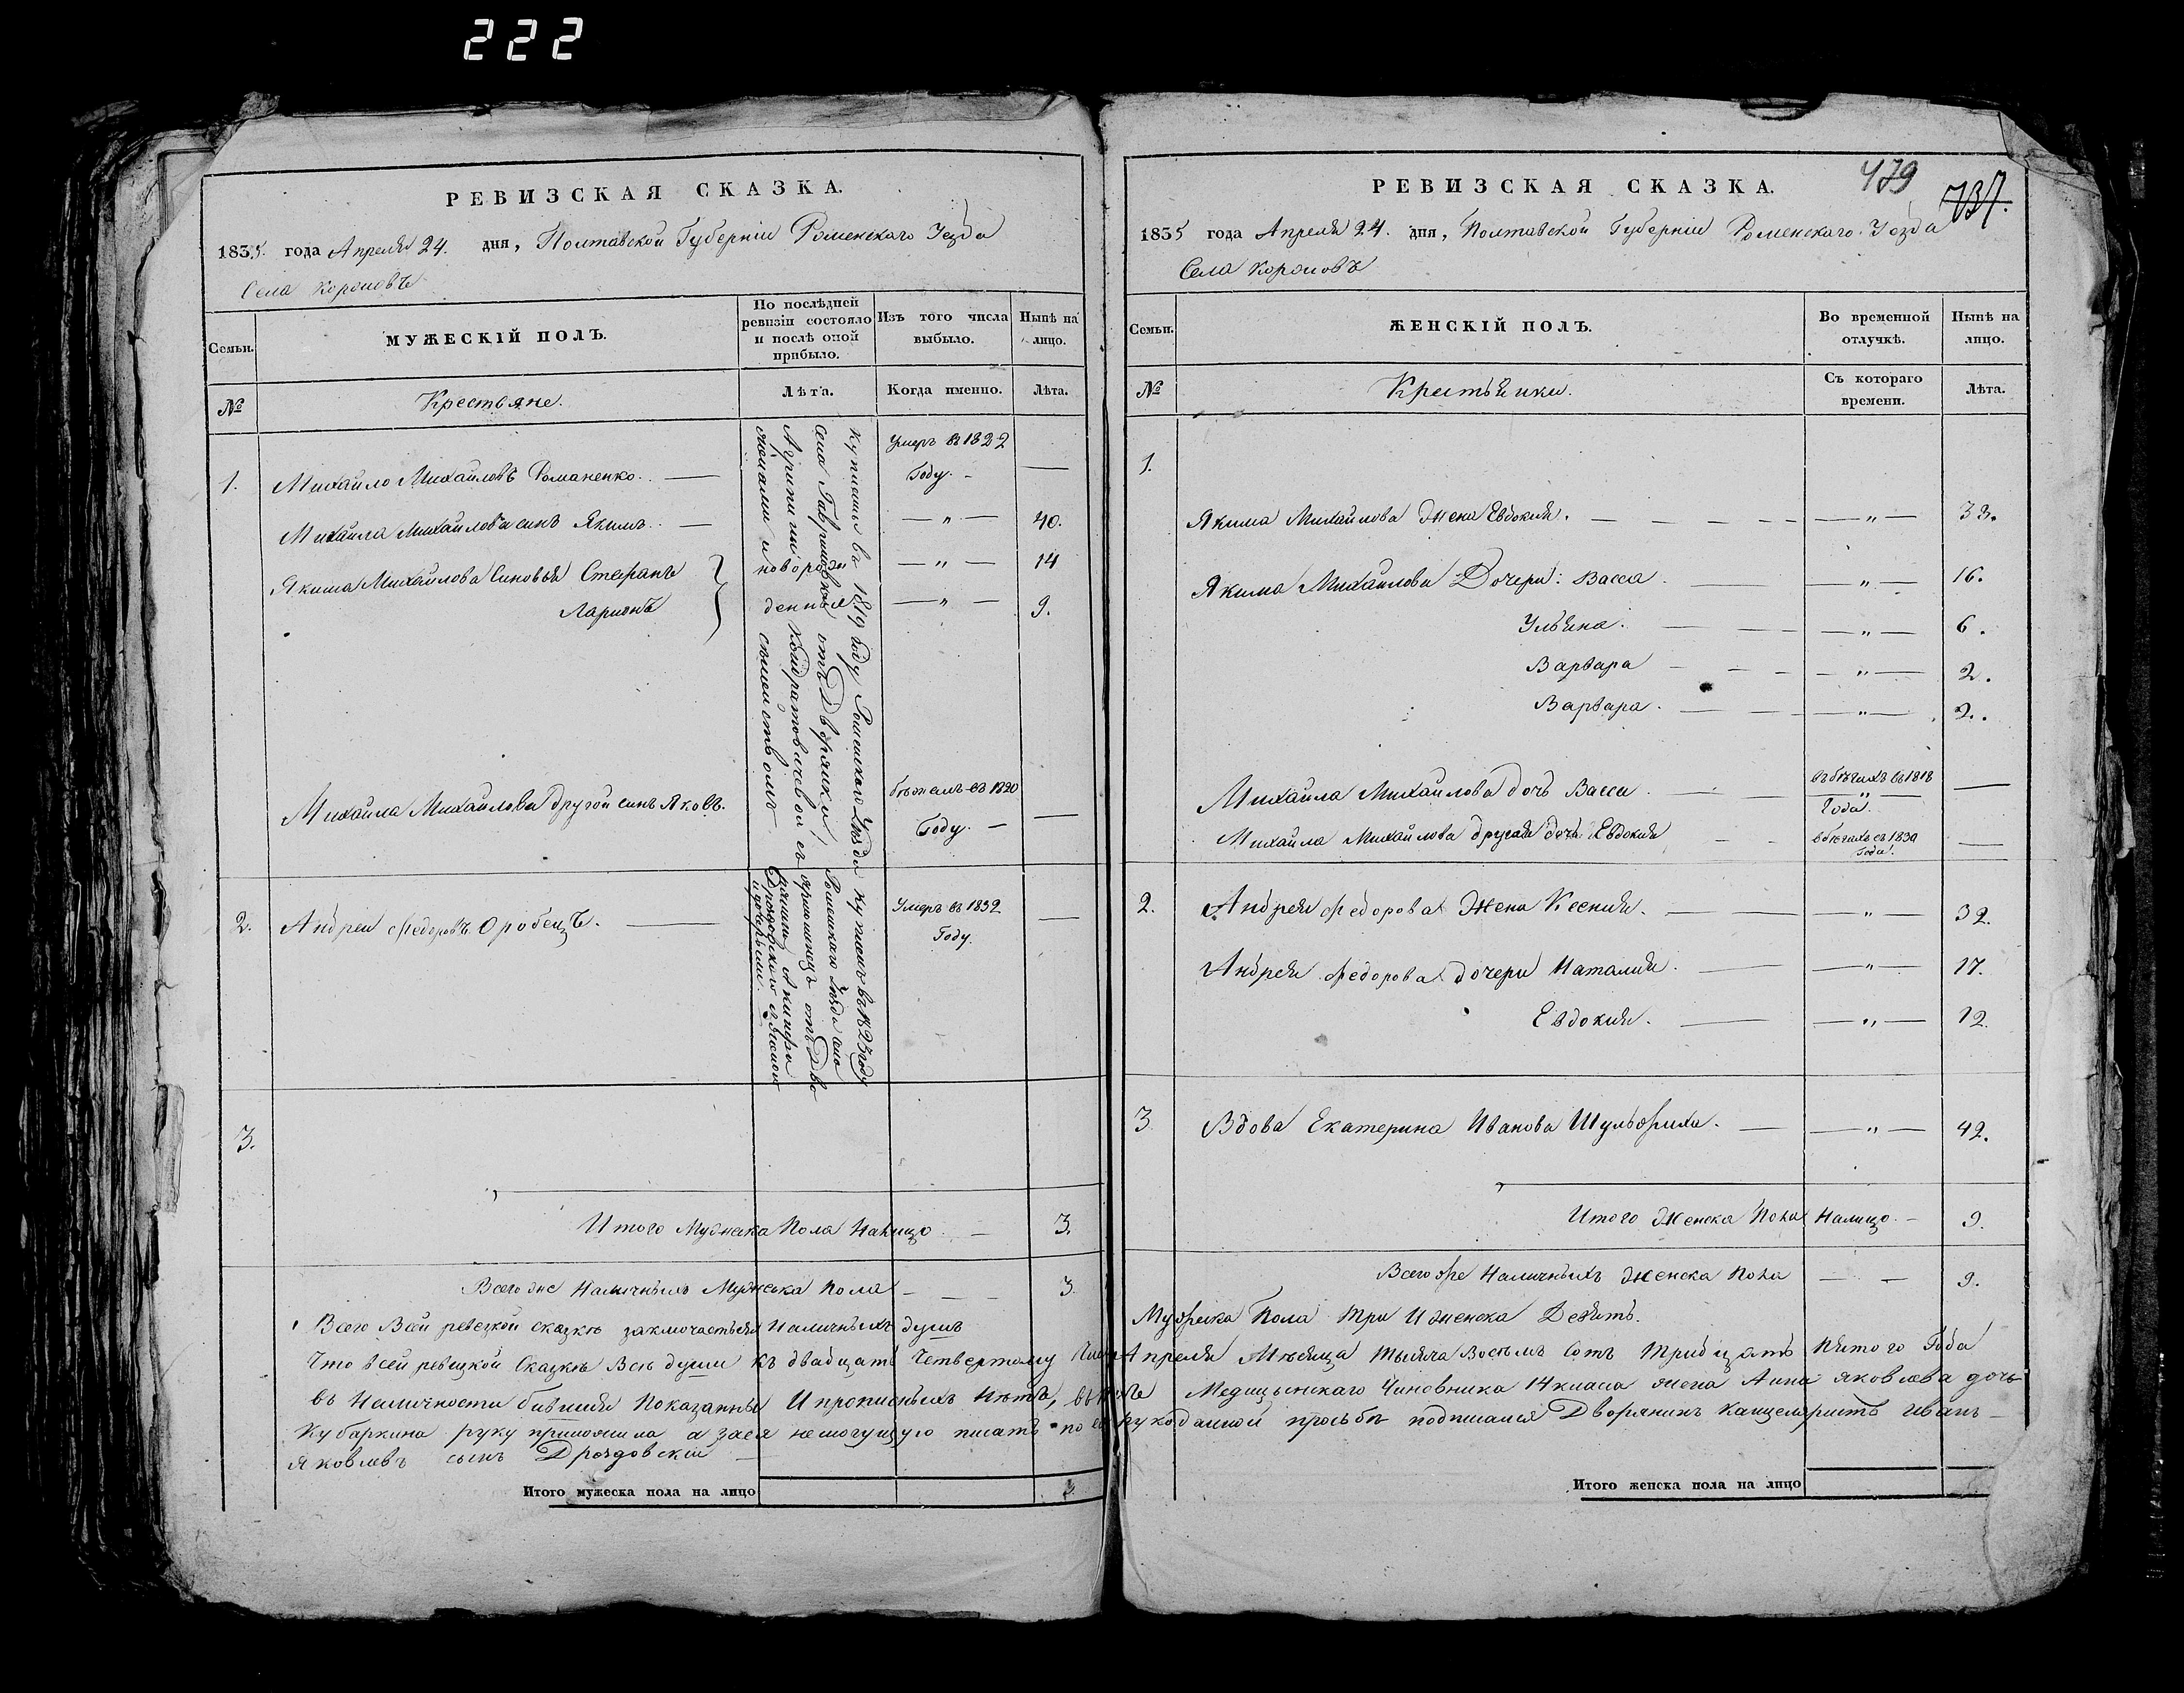 222
РЕВИЗСКАЯ СКАЗКА.
1835. года Апреля 24. дня, Полтавской Губернiи Роменского Уезда
Села Корововъ
Семьи.
МУЖЕСКIЙ ПОЛЪ.
По послѣдней ревизiи состояло и послѣ оной прибыло.
Изъ того числа выбыло.
Нынѣ на лицо.
№
Крестьяне.
Лѣта.
Когда именно.
Лѣта.
1. Михайло Михайловъ Романенко. Умеръ в 1822 Году.
Михаила Михайлова синъ Якимъ. 40.
Якима Михайлова Синовья Стефанъ 14
Ларионъ 9.
Михайла Михайлова другой синъ Яковъ. бѣжалъ въ 1820 Году.
купленъ въ 1819 году Роменского Уѣзда
села Гавриловки отъ Дворянки
Агрипины Кондратовичевой съ
новорожденныя семействомъ
купленъ въ 1823 году
Роменского Уѣзда
2. Андрей Федоровъ Оробецъ. Умеръ въ 1832 Году.
3.
Итого Мужеска Пола Налицо 3.
Всего же Наличныхъ Мужеска Пола 3.
РЕВИЗСКАЯ СКАЗКА.
479
737.
1835 года Апреля 24. дня, Полтавской Губернiи Роменскаго Уезда
Села Корововъ
Семьи.
ЖЕНСКIЙ ПОЛЪ.
Во временной отлучкѣ.
Нынѣ на лицо.
№
Крестьянки.
Съ котораго времени.
Лѣта.
1.
Якима Михайлова Жена Евдокия. 33.
Якима Михайлова Дочери: Васса 16.
Ульяна. 6.
Варвара 2.
Варвара. 2.
Михайла Михайлова дочь Васса въ бѣгахъ въ 1818 Года.
Михайла Михайлова другая дочь Евдокия в бѣгахъ съ 1830 Года.
2. Андрея Федорова Жена Ксения. 32.
Андрея Федорова дочери Наталия. 17.
Евдокия. 12.
3 Вдова Екатерина Иванова 42.
Итого Женска Пола Налицо. 9.
Всего же Наличныхъ Женска Пола 9.
Всего Всей ревизкой сказкѣ заключаеться Наличныхъ душъ Мужеска Пола три И женска Девять.
Что всей ревизкой Сказкѣ Всѣ души къ двадцать Четвертому Апреля Мѣсяца тысяча Восемъ Сотъ тридцать Пятого Года
въ Наличности бывшия Показанны И прописныхъ Нѣтъ, Медицынскаго Чиновника 14 класа жена Анна Яковлева дочь
Кубаркина руку приложила а за нея немогущую писать по ея рукоданной просьбѣ подписался Дворянинъ канцеляристъ Иванъ
Яковлевъ сынъ Дроздовскiй
Итого мужеска пола на лицо 3.
Итого женска пола на лицо